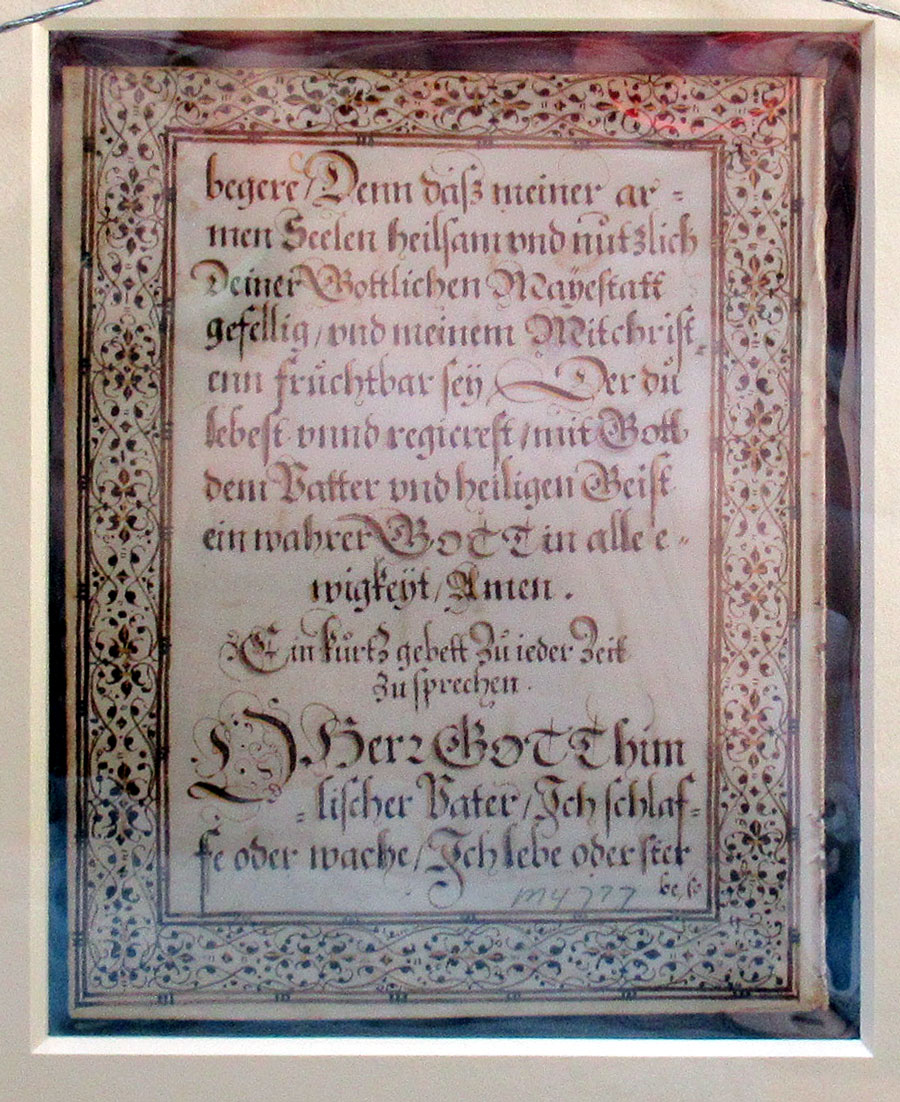 begere/ Denn daß meiner ar=
men Seelen heilsam vnd nutzlich
Deiner Gottlichen Mayestatt
gefellig/ vnd meinem Mitchrist=
enn früchtbar seÿ/ Der dü
lebest vnnd regierest/ mit Gott
dem Vatter vnd heiligen Geist
ein wahrer GOTT in alle e=
wigkeÿt/ Amen.
Ein kürtz gebett Zü ieder Zeit
Zü sprechen.
O Herr GOTT him
=lischer Vater/ Ich schlaf=
fe oder wache/ Ich lebe oder ster
be, so
M4777